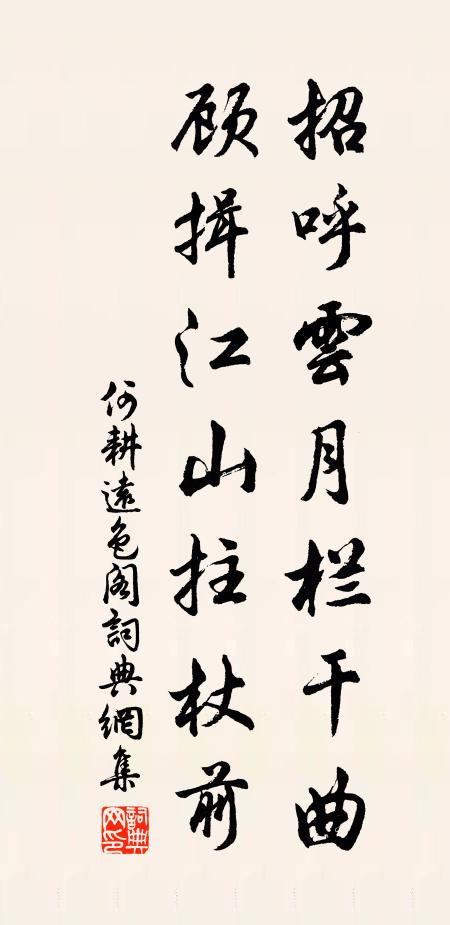 招呼雲月栏干曲
顾揖江山拄杖前
何耕遠色阁詞典網集
詞典網印